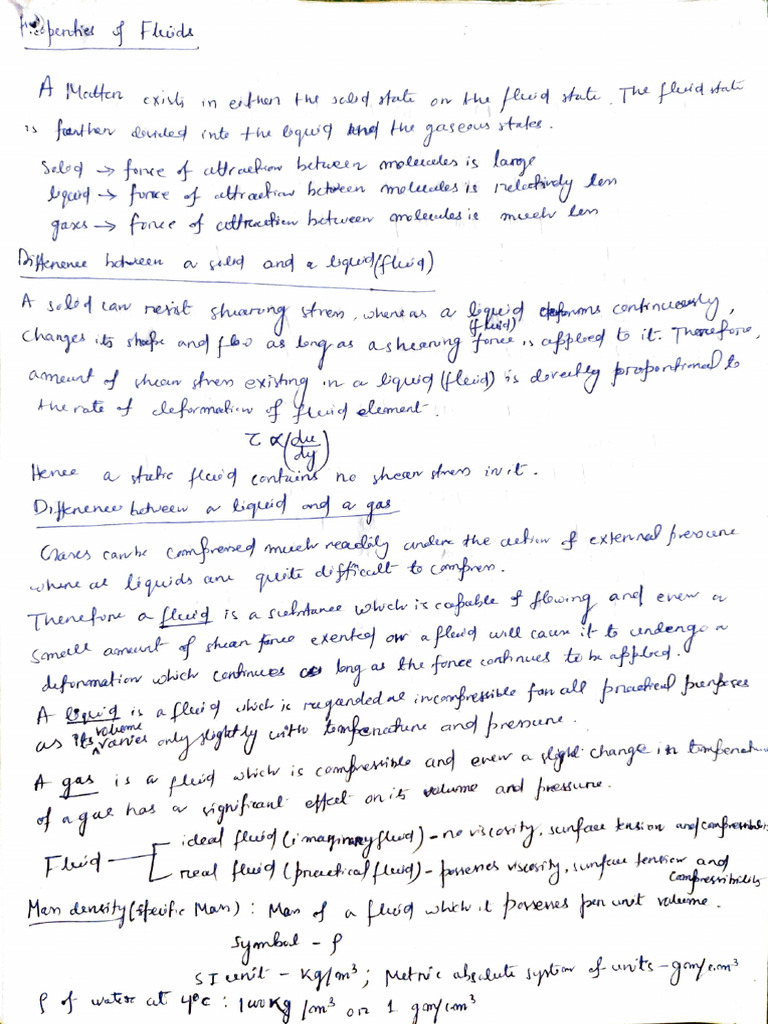 Properties of Fluids
A Matter exists in either the solid state or the fluid state. The fluid state
is further divided into the liquid and the gaseous states.
Solid → force of attraction between molecules is large
liquid → force of attraction between molecules is relatively less
gases → force of attraction between molecules is much less
Difference between a solid and a liquid (fluid)
A solid can resist shearing stress, whereas a liquid (fluid) deforms continuously,
changes its shape and flow as long as a shearing force is applied to it. Therefore,
amount of shear stress existing in a liquid (fluid) is directly proportional to
the rate of deformation of fluid element.
τ ∝ (du/dy)
Hence a static fluid contains no shear stress in it.
Difference between a liquid and a gas
Gases can be compressed much readily under the action of external pressure
where as liquids are quite difficult to compress.
Therefore a fluid is a substance which is capable of flowing and even a
small amount of shear force exerted on a fluid will cause it to undergo a
deformation which continues as long as the force continues to be applied.
A liquid is a fluid which is regarded as incompressible for all practical purposes
as its volume varies only slightly with temperature and pressure.
A gas is a fluid which is compressible and even a slight change in temperature
of a gas has a significant effect on its volume and pressure.
ideal fluid (imaginary fluid) - no viscosity, surface tension and compressibility
Fluid
real fluid (practical fluid) - possesses viscosity, surface tension and compressibility
Mass density (specific Mass) : Mass of a fluid which it possesses per unit volume.
Symbol - ρ
SI unit - kg/m³ ; Metric absolute system of units - gm/cm³
ρ of water at 4°c : 1000 kg /m³ or 1 gm/cm³